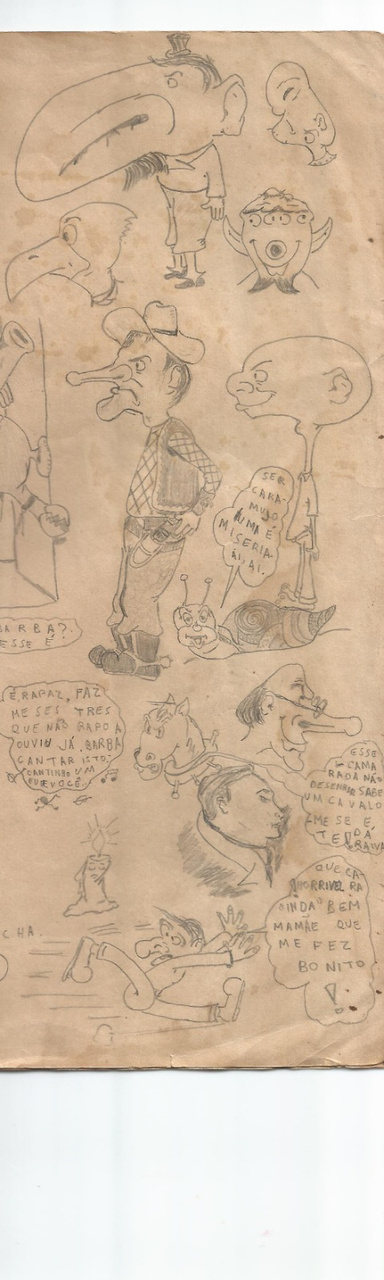 SER
CARA-
MUJO
UMA É
MISERIA.
AI, AI.
BARBA?.
ESSE É
É RAPAZ, FAZ
MESES TRES
QUE NÃO RAPO A
OUVIU JÁ. BARBA
CANTAR ISTO.
CANTINHO UM
E VOCÊ.
ESSE
CAMA
RADA NÃO
DESENHAR SABE
UM CAVALO
ME SE E,
TE DÁ
RAIVA
QUE CA
HORRIVEL RA
AINDA BEM
MAMÃE QUE
ME FEZ
BONITO
!
CHA.